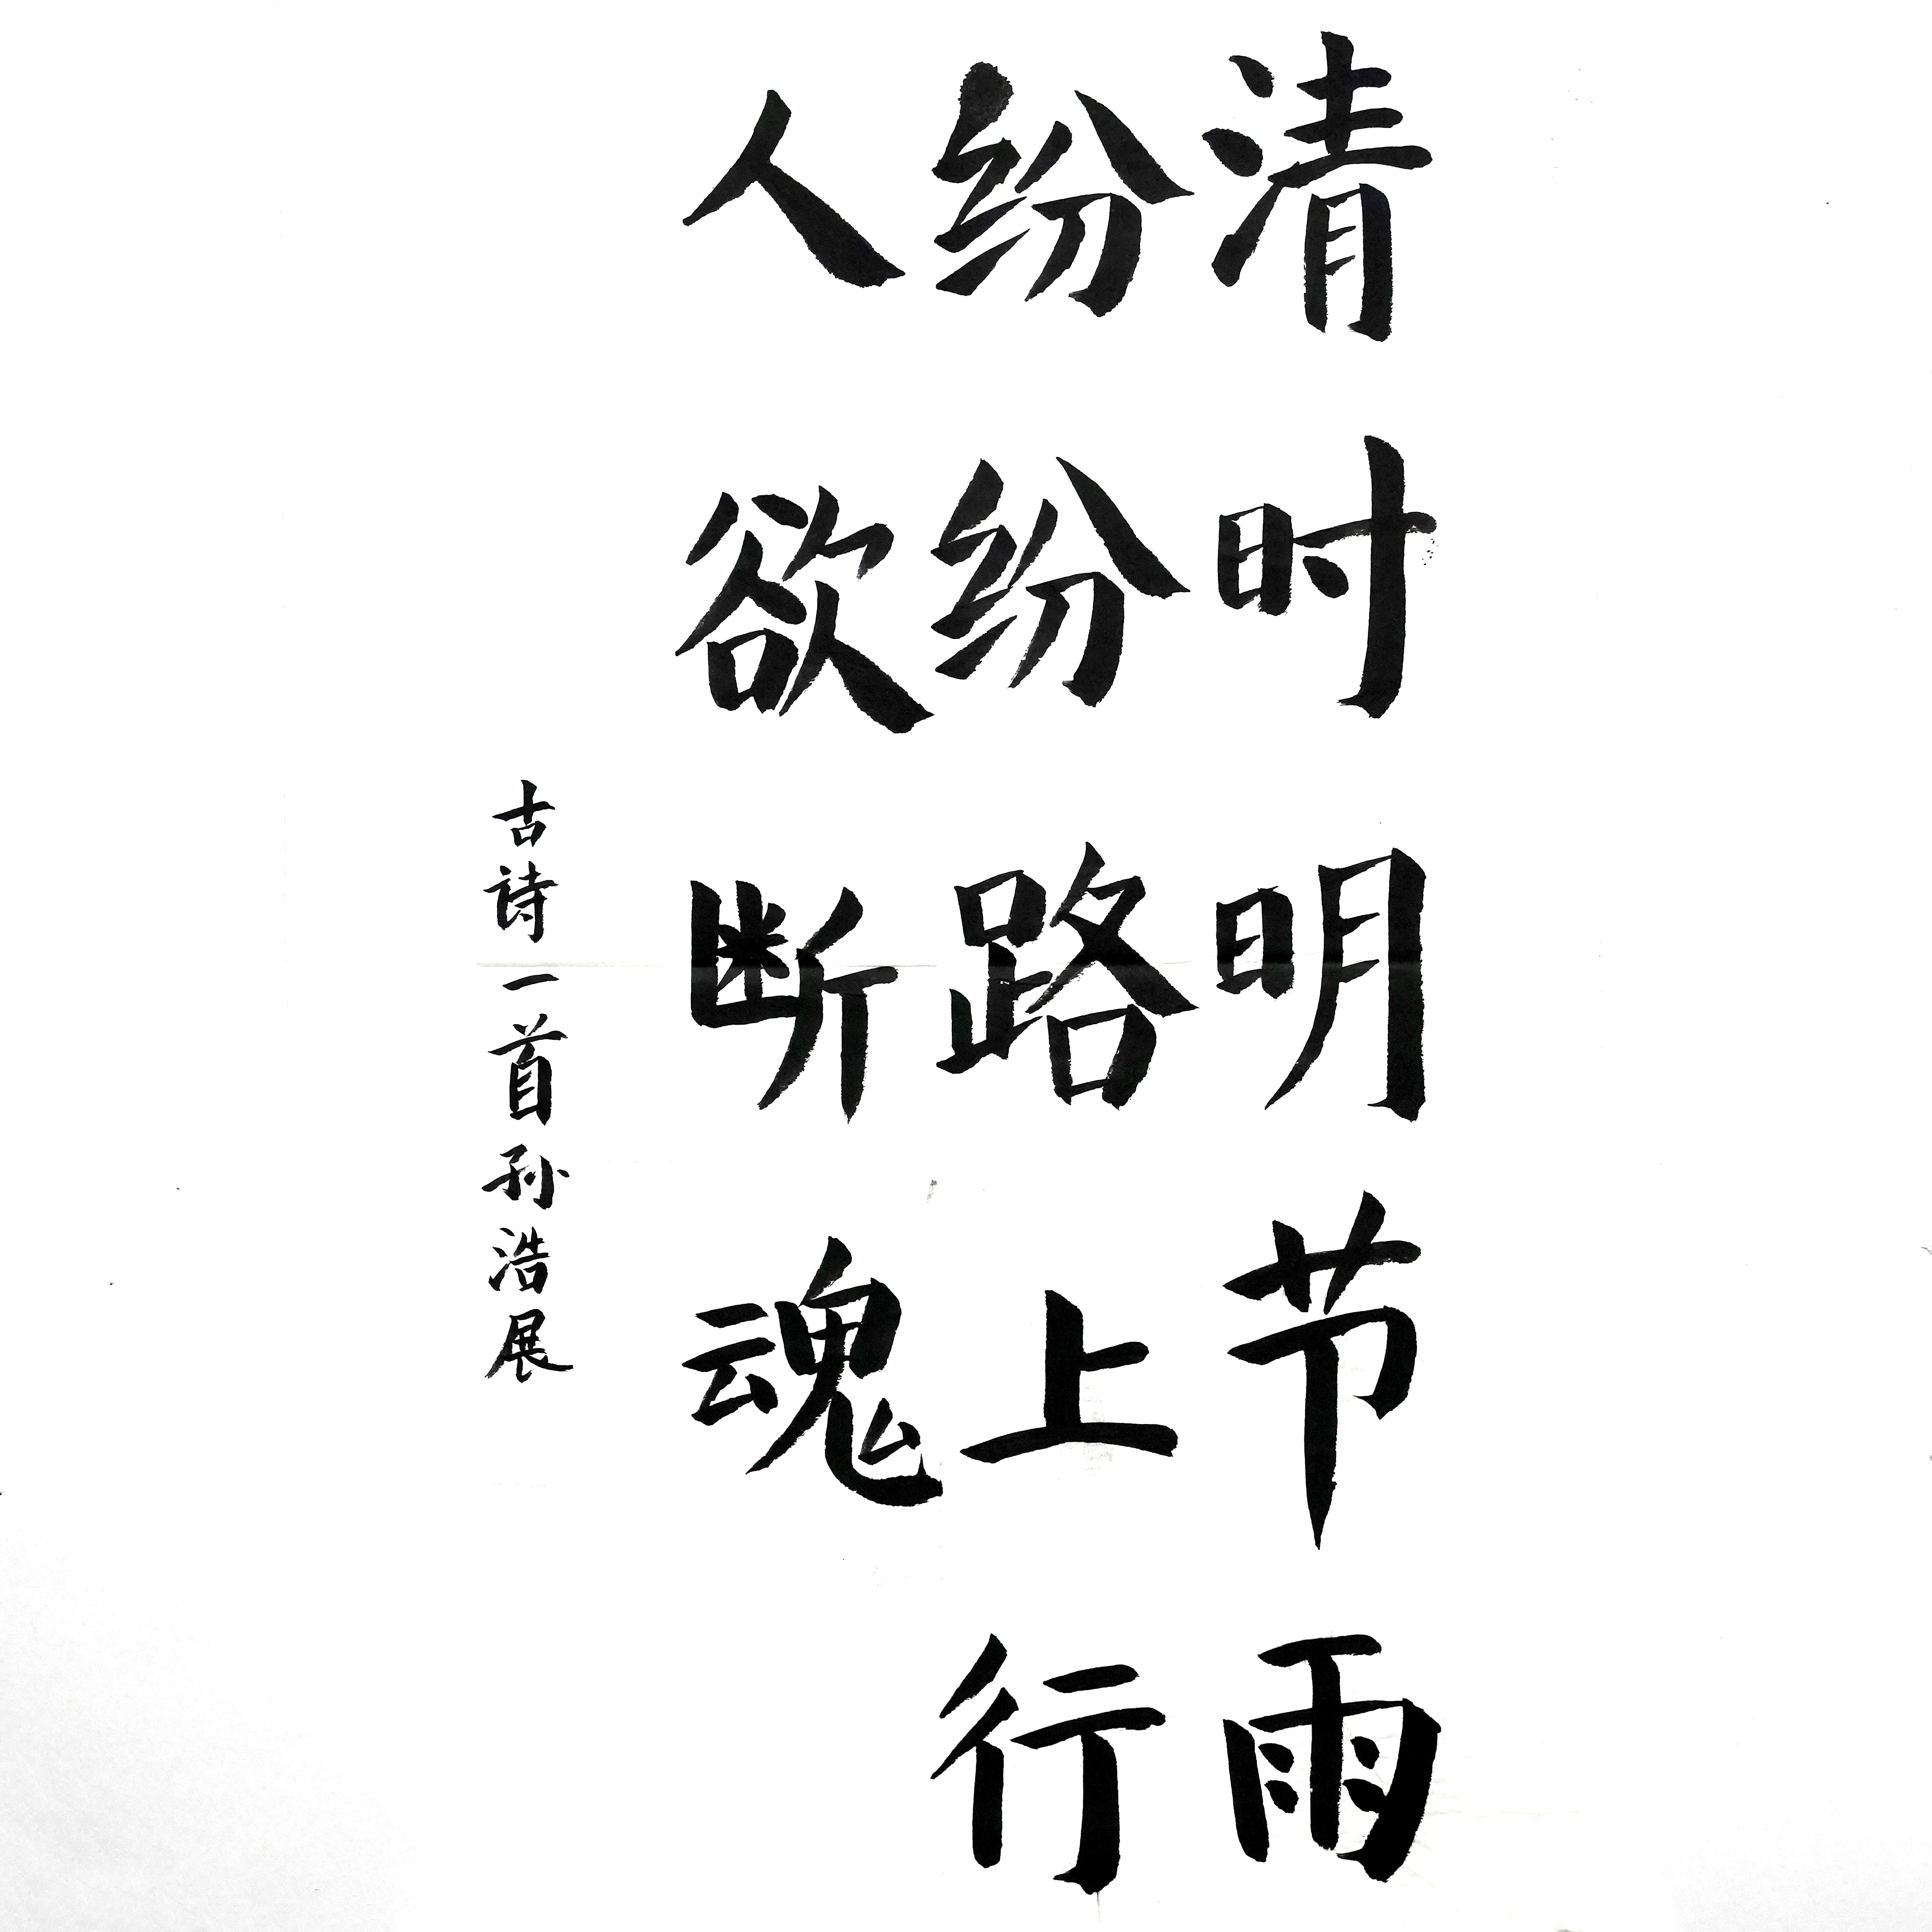 清时明节雨
纷纷路上行
人欲断魂
古诗一首孙浩展